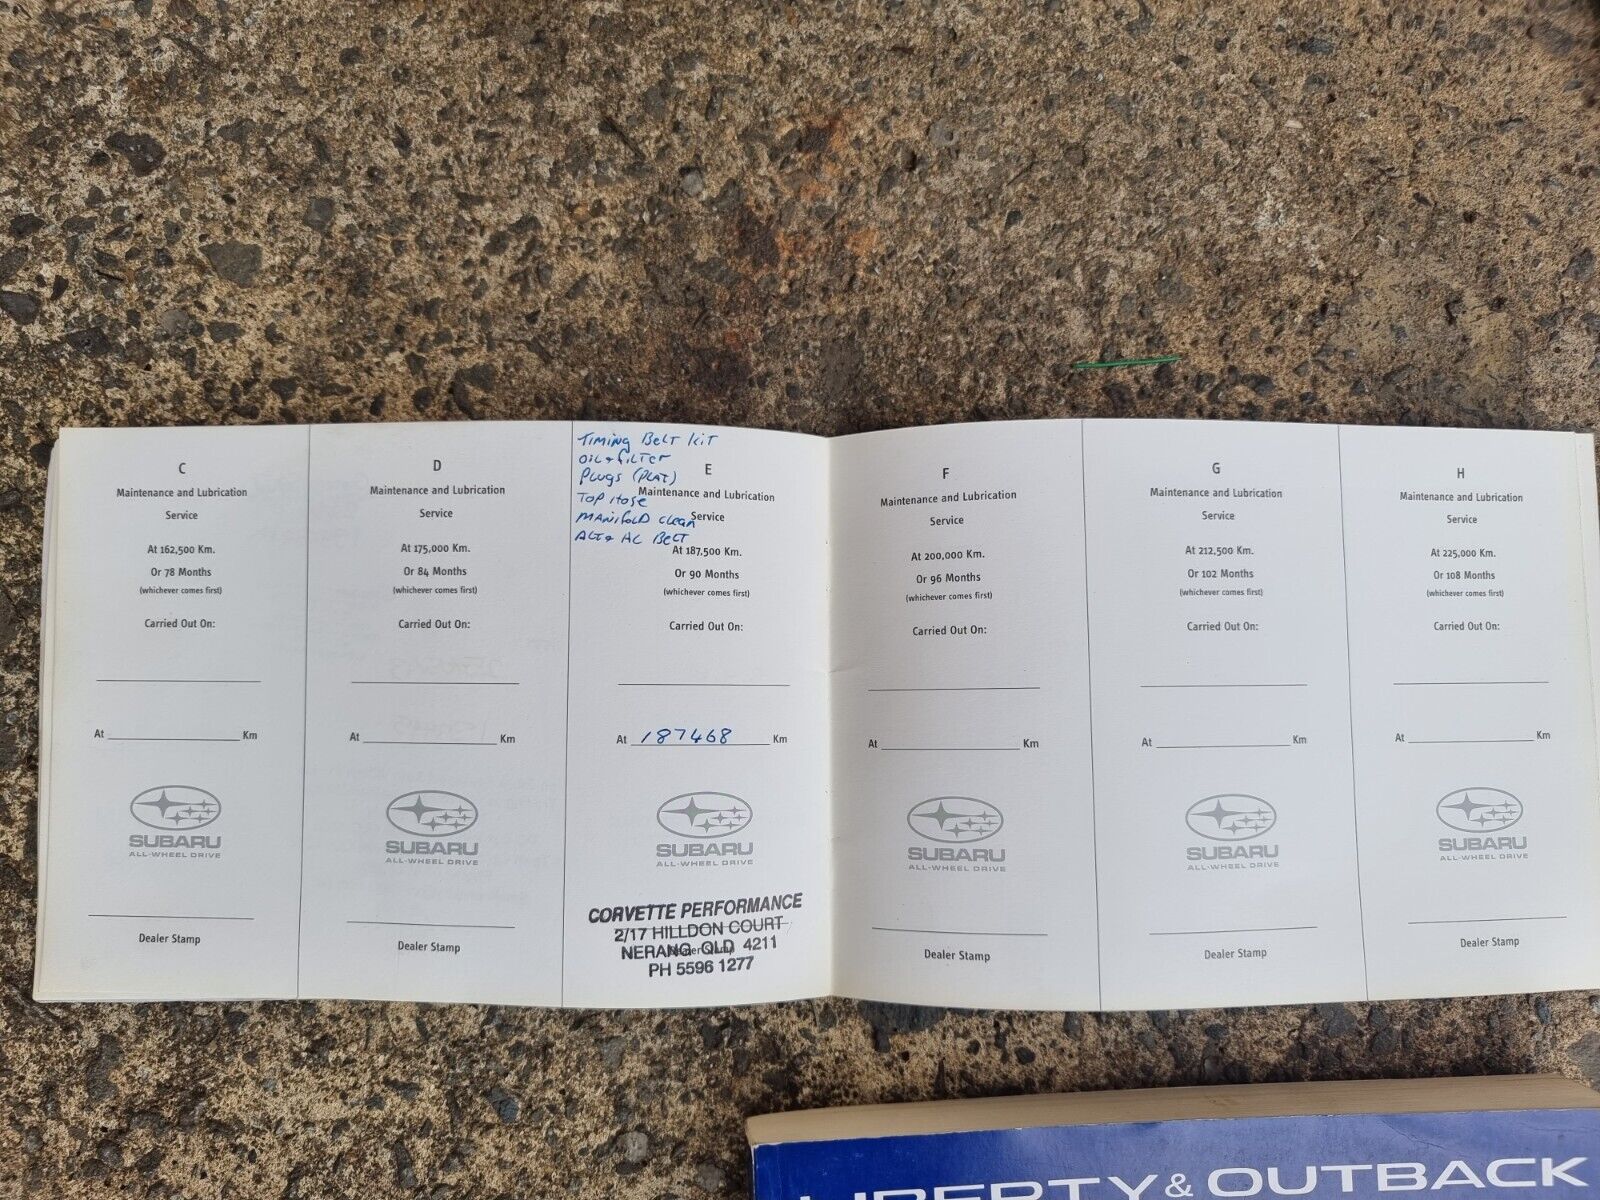 C
Maintenance and Lubrication
Service
At 162,500 Km.
Or 78 Months
(whichever comes first)
Carried Out On:
At Km
SUBARU
ALL-WHEEL DRIVE
Dealer Stamp
D
Maintenance and Lubrication
Service
At 175,000 Km.
Or 84 Months
(whichever comes first)
Carried Out On:
At Km
SUBARU
ALL-WHEEL DRIVE
Dealer Stamp
Timing Belt Kit
Oil & Filter
Plugs (Plat)
Top Hose
Manifold Clean
Alt & AC Belt
E
Maintenance and Lubrication
Service
At 187,500 Km.
Or 90 Months
(whichever comes first)
Carried Out On:
At 187468 Km
SUBARU
ALL-WHEEL DRIVE
Dealer Stamp
CORVETTE PERFORMANCE
2/17 HILLDON COURT
NERANG QLD 4211
PH 5596 1277
F
Maintenance and Lubrication
Service
At 200,000 Km.
Or 96 Months
(whichever comes first)
Carried Out On:
At Km
SUBARU
ALL-WHEEL DRIVE
Dealer Stamp
G
Maintenance and Lubrication
Service
At 212,500 Km.
Or 102 Months
(whichever comes first)
Carried Out On:
At Km
SUBARU
ALL-WHEEL DRIVE
Dealer Stamp
H
Maintenance and Lubrication
Service
At 225,000 Km.
Or 108 Months
(whichever comes first)
Carried Out On:
At Km
SUBARU
ALL-WHEEL DRIVE
Dealer Stamp
LIBERTY & OUTBACK